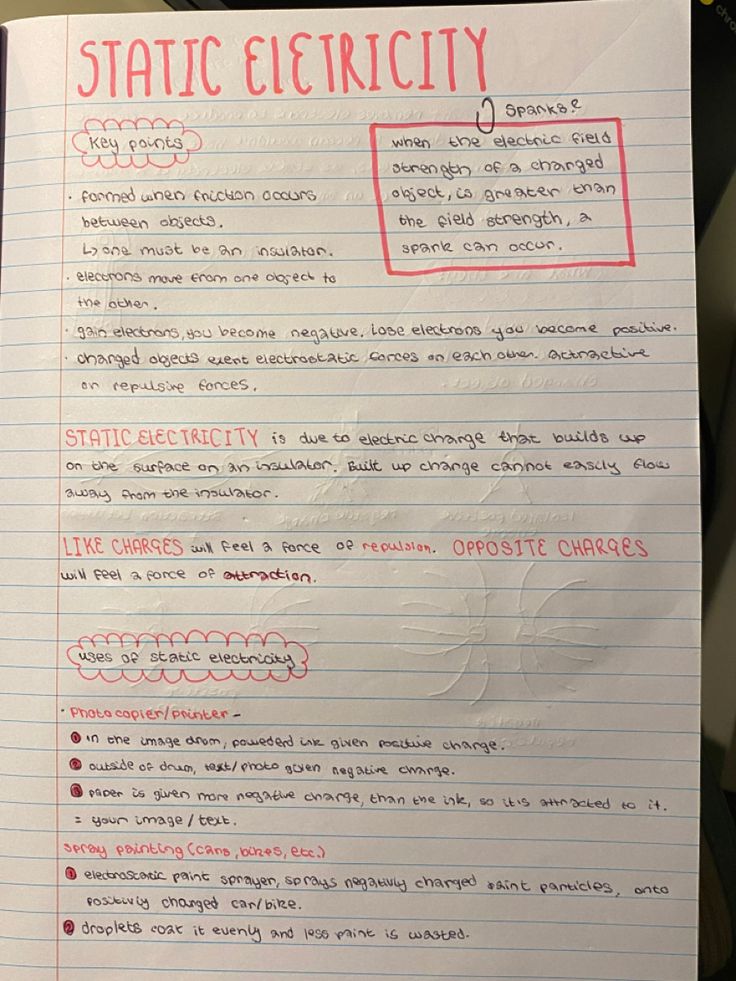 STATIC ElETRICITY
Sparks?
when the electric field
strength of a charged
object, is greater than
the field strength, a
spark can occur.
key points
· formed when friction occurs
between objects.
↳ one must be an insulator.
· electrons move from one object to
the other.
· gain electrons, you become negative. Lose electrons you become positive.
· charged objects exert electrostatic forces on each other. attractive
or repulsive forces.
STATIC ElECTRICITY is due to electric charge that builds up
on the surface on an insulator. Built up charge cannot easily flow
away from the insulator.
LIKE CHARGES will feel a force of repulsion. OPPOSITE CHARGES
will feel a force of attraction.
uses of static electricity
· Photocopier/printer -
1 in the image drum, powederd ink given positive charge.
2 outside of drum, text/photo given negative charge.
3 paper is given more negative charge, than the ink, so it is attracted to it.
= your image / text.
spray painting (cars, bikes, etc.)
1 electrostatic paint sprayer, sprays negativly charged paint particles, onto
positivly charged car/bike.
2 droplets coat it evenly and less paint is wasted.
chro